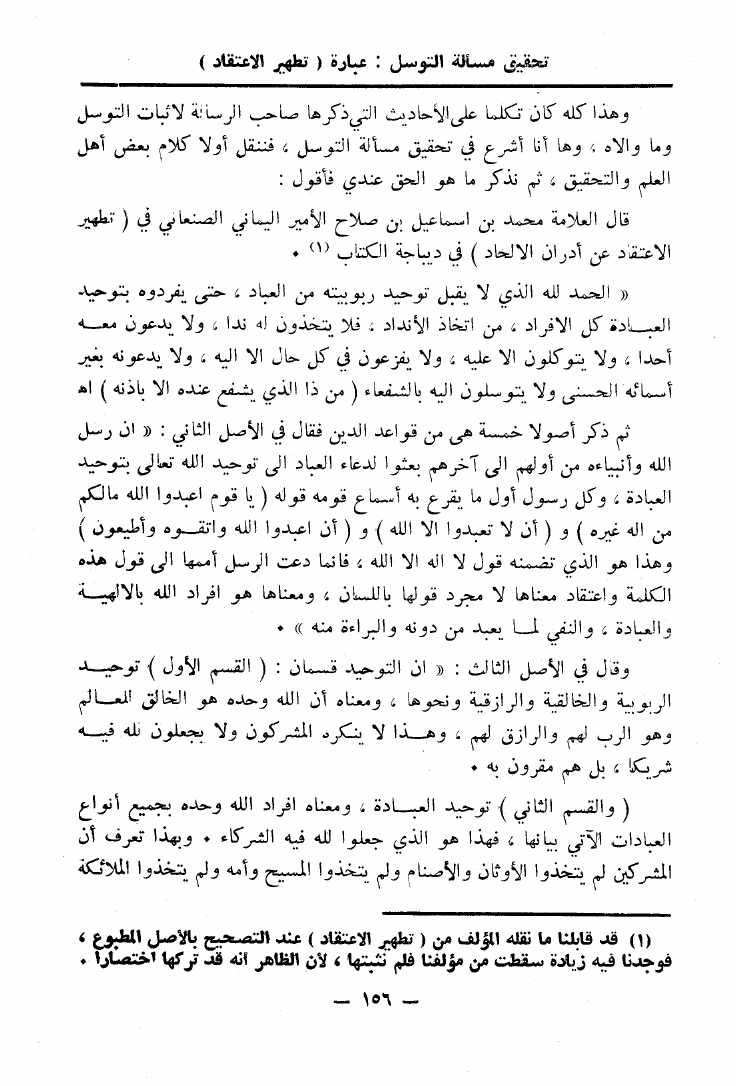 تحقيق مسألة التوسل : عبارة ( تطهير الاعتقاد )
وهذا كله كان تكلما على الأحاديث التي ذكرها صاحب الرسالة لاثبات التوسل
وما والاه ، وها أنا أشرع في تحقيق مسألة التوسل ، فننقل أولا كلام بعض أهل
العلم والتحقيق ، ثم نذكر ما هو الحق عندي فأقول :
قال العلامة محمد بن اسماعيل بن صلاح الأمير اليماني الصنعاني في ( تطهير
الاعتقاد عن أدران الالحاد ) في ديباجة الكتاب (١) .
« الحمد لله الذي لا يقبل توحيد ربوبيته من العباد ، حتى يفردوه بتوحيد
العبـادة كل الافراد ، من اتخاذ الأنداد ، فلا يتخذون له ندا ، ولا يدعون معـه
أحدا ، ولا يتوكلون الا عليه ، ولا يفزعون في كل حال الا اليه ، ولا يدعونه بغير
أسمائه الحسنى ولا يتوسلون اليه بالشفعاء ( من ذا الذي يشفع عنده الا باذنه ) اه
ثم ذكر أصولا خمسة هى من قواعد الدين فقال في الأصل الثاني : « ان رسل
الله وأنبياءه من أولهم الى آخرهم بعثوا لدعاء العباد الى توحيد الله تعالى بتوحيد
العبادة ، وكل رسول أول ما يقرع به أسماع قومه قوله ( يا قوم اعبدوا الله مالكم
من اله غيره ) و ( أن لا تعبدوا الا الله ) و ( أن اعبدوا الله واتقـوه وأطيعون )
وهذا هو الذي تضمنه قول لا اله الا الله ، فانما دعت الرسل أممها الى قول هذه
الكلمة واعتقاد معناها لا مجرد قولها باللسان ، ومعناها هو افراد الله بالالهيـة
والعبادة ، والنفي لمـا يعبد من دونه والبراءة منه » .
وقال في الأصل الثالث : « ان التوحيد قسمان : ( القسم الأول ) توحيـد
الربوبية والخالقية والرازقية ونحوها ، ومعناه أن الله وحده هو الخالق للعـالم
وهو الرب لهم والرازق لهم ، وهـذا لا ينكره المشركون ولا يجعلون لله فيـه
شريكا ، بل هم مقرون به .
( والقسم الثاني ) توحيد العبـادة ، ومعناه افراد الله وحده بجميع أنواع
العبادات الآتي بيانها ، فهذا هو الذي جعلوا لله فيه الشركاء . وبهذا تعرف أن
المشركين لم يتخذوا الأوثان والأصنام ولم يتخذوا المسيح وأمه ولم يتخذوا الملائكة
(١) قد قابلنا ما نقله المؤلف من ( تطهير الاعتقاد ) عند التصحيح بالأصل المطبوع ،
فوجدنا فيه زيادة سقطت من مؤلفنا فلم نثبتها ، لأن الظاهر أنه قد تركها اختصارا .
— ١٥٦ —